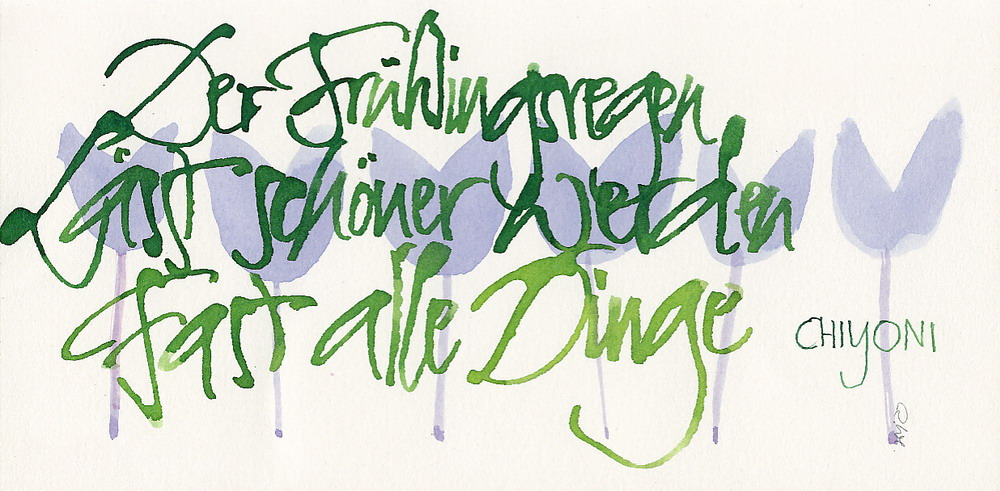 Der Frühlingsregen
Läst schöner werden
fast alle Dinge
CHIYONI